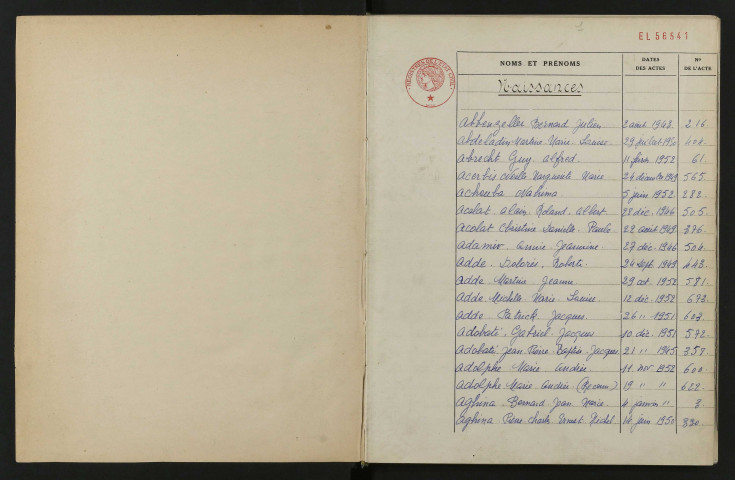 EL56541
NOMS ET PRÉNOMS DATES DES ACTES N° DE L'ACTE
Naissances
Abbenzeller Bernard Julien 2 août 1948 216
Martine Marie Louise 29 juillet 1950 404
Abrecht Guy Alfred 11 févr. 1952 61
Acerbis Marguerite Marie 24 décembre 1949 565
Achouba 5 juin 1952 282
Acolat Alain Roland Albert 28 déc. 1946 505
Acolat Christine Danielle Paule 22 août 1949 376
Annie Jeannine 27 déc. 1946 504
Adde Dolorès Roberte 24 sept. 1949 443
Adde Martine Jeanne 29 oct. 1952 581
Adde Michelle Marie Louise 12 déc. 1952 673
Adde Patrick Jacques 26 " 1951 603
Adobati Gabriel Jacques 10 déc. 1951 572
Adobati Jean Pierre Jacques 21 " 1945 357
Adolphe Marie Andrée 11 nov 1952 600
Adolphe Marie Andrée 19 " " 622
Aghina Bernard Jean Marie 4 janvier " 3
Aghina Pierre Charles Ernest Michel 14 juin 1950 330